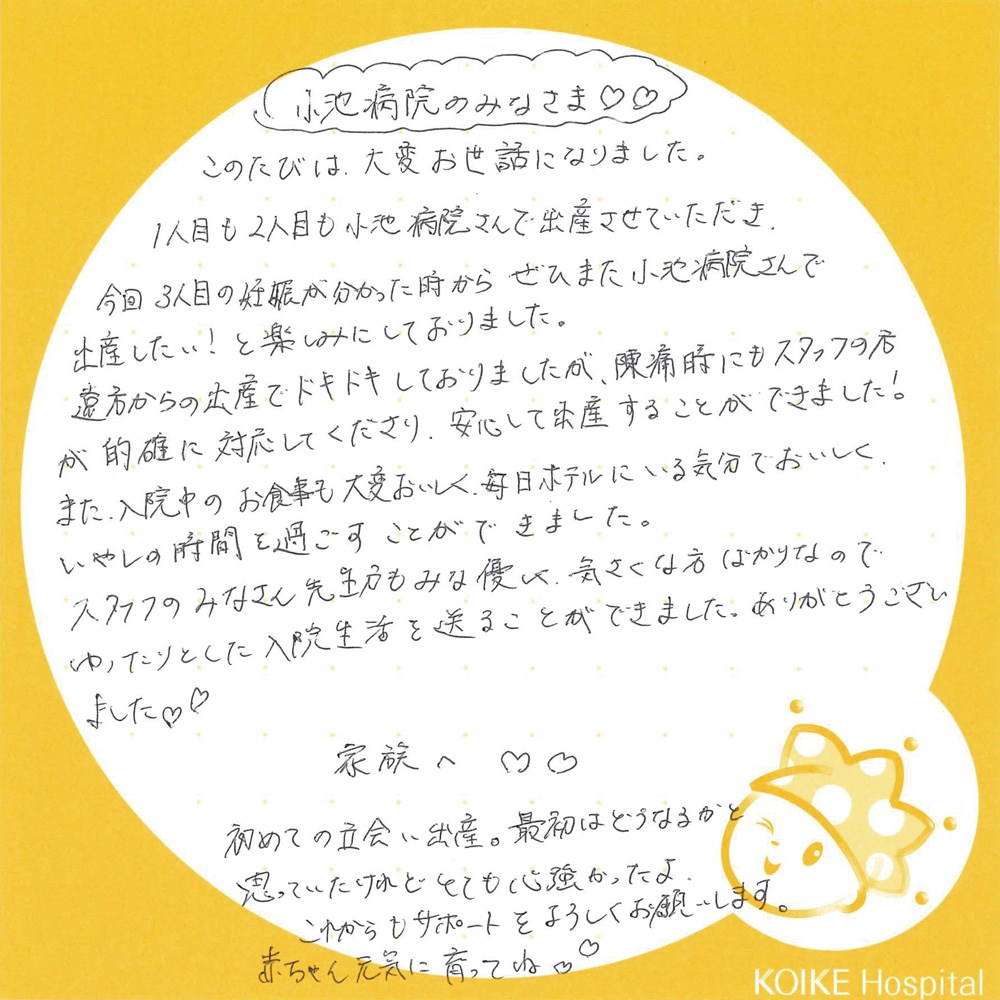 小池病院のみなさま♡♡
このたびは、大変お世話になりました。
1人目も2人目も小池病院さんで出産させていただき、
今回3人目の妊娠が分かった時からぜひまた小池病院さんで
出産したい!と楽しみにしておりました。
遠方からの出産でドキドキしておりましたが、陣痛時にもスタッフの方
が的確に対応してくださり、安心して出産することができました!
また、入院中のお食事も大変おいしく、毎日ホテルにいる気分でおいしく、
いやしの時間を過ごすことができました。
スタッフのみなさん先生方もみな優しく、気さくな方ばかりなので
ゆったりとした入院生活を送ることができました。ありがとうござい
ました♡♡
家族へ ♡♡
初めての立会い出産。最初はどうなるかと
思っていたけれどとても心強かったよ。
これからもサポートをよろしくお願いします。
赤ちゃん元気に育ってね♡♡
KOIKE Hospital